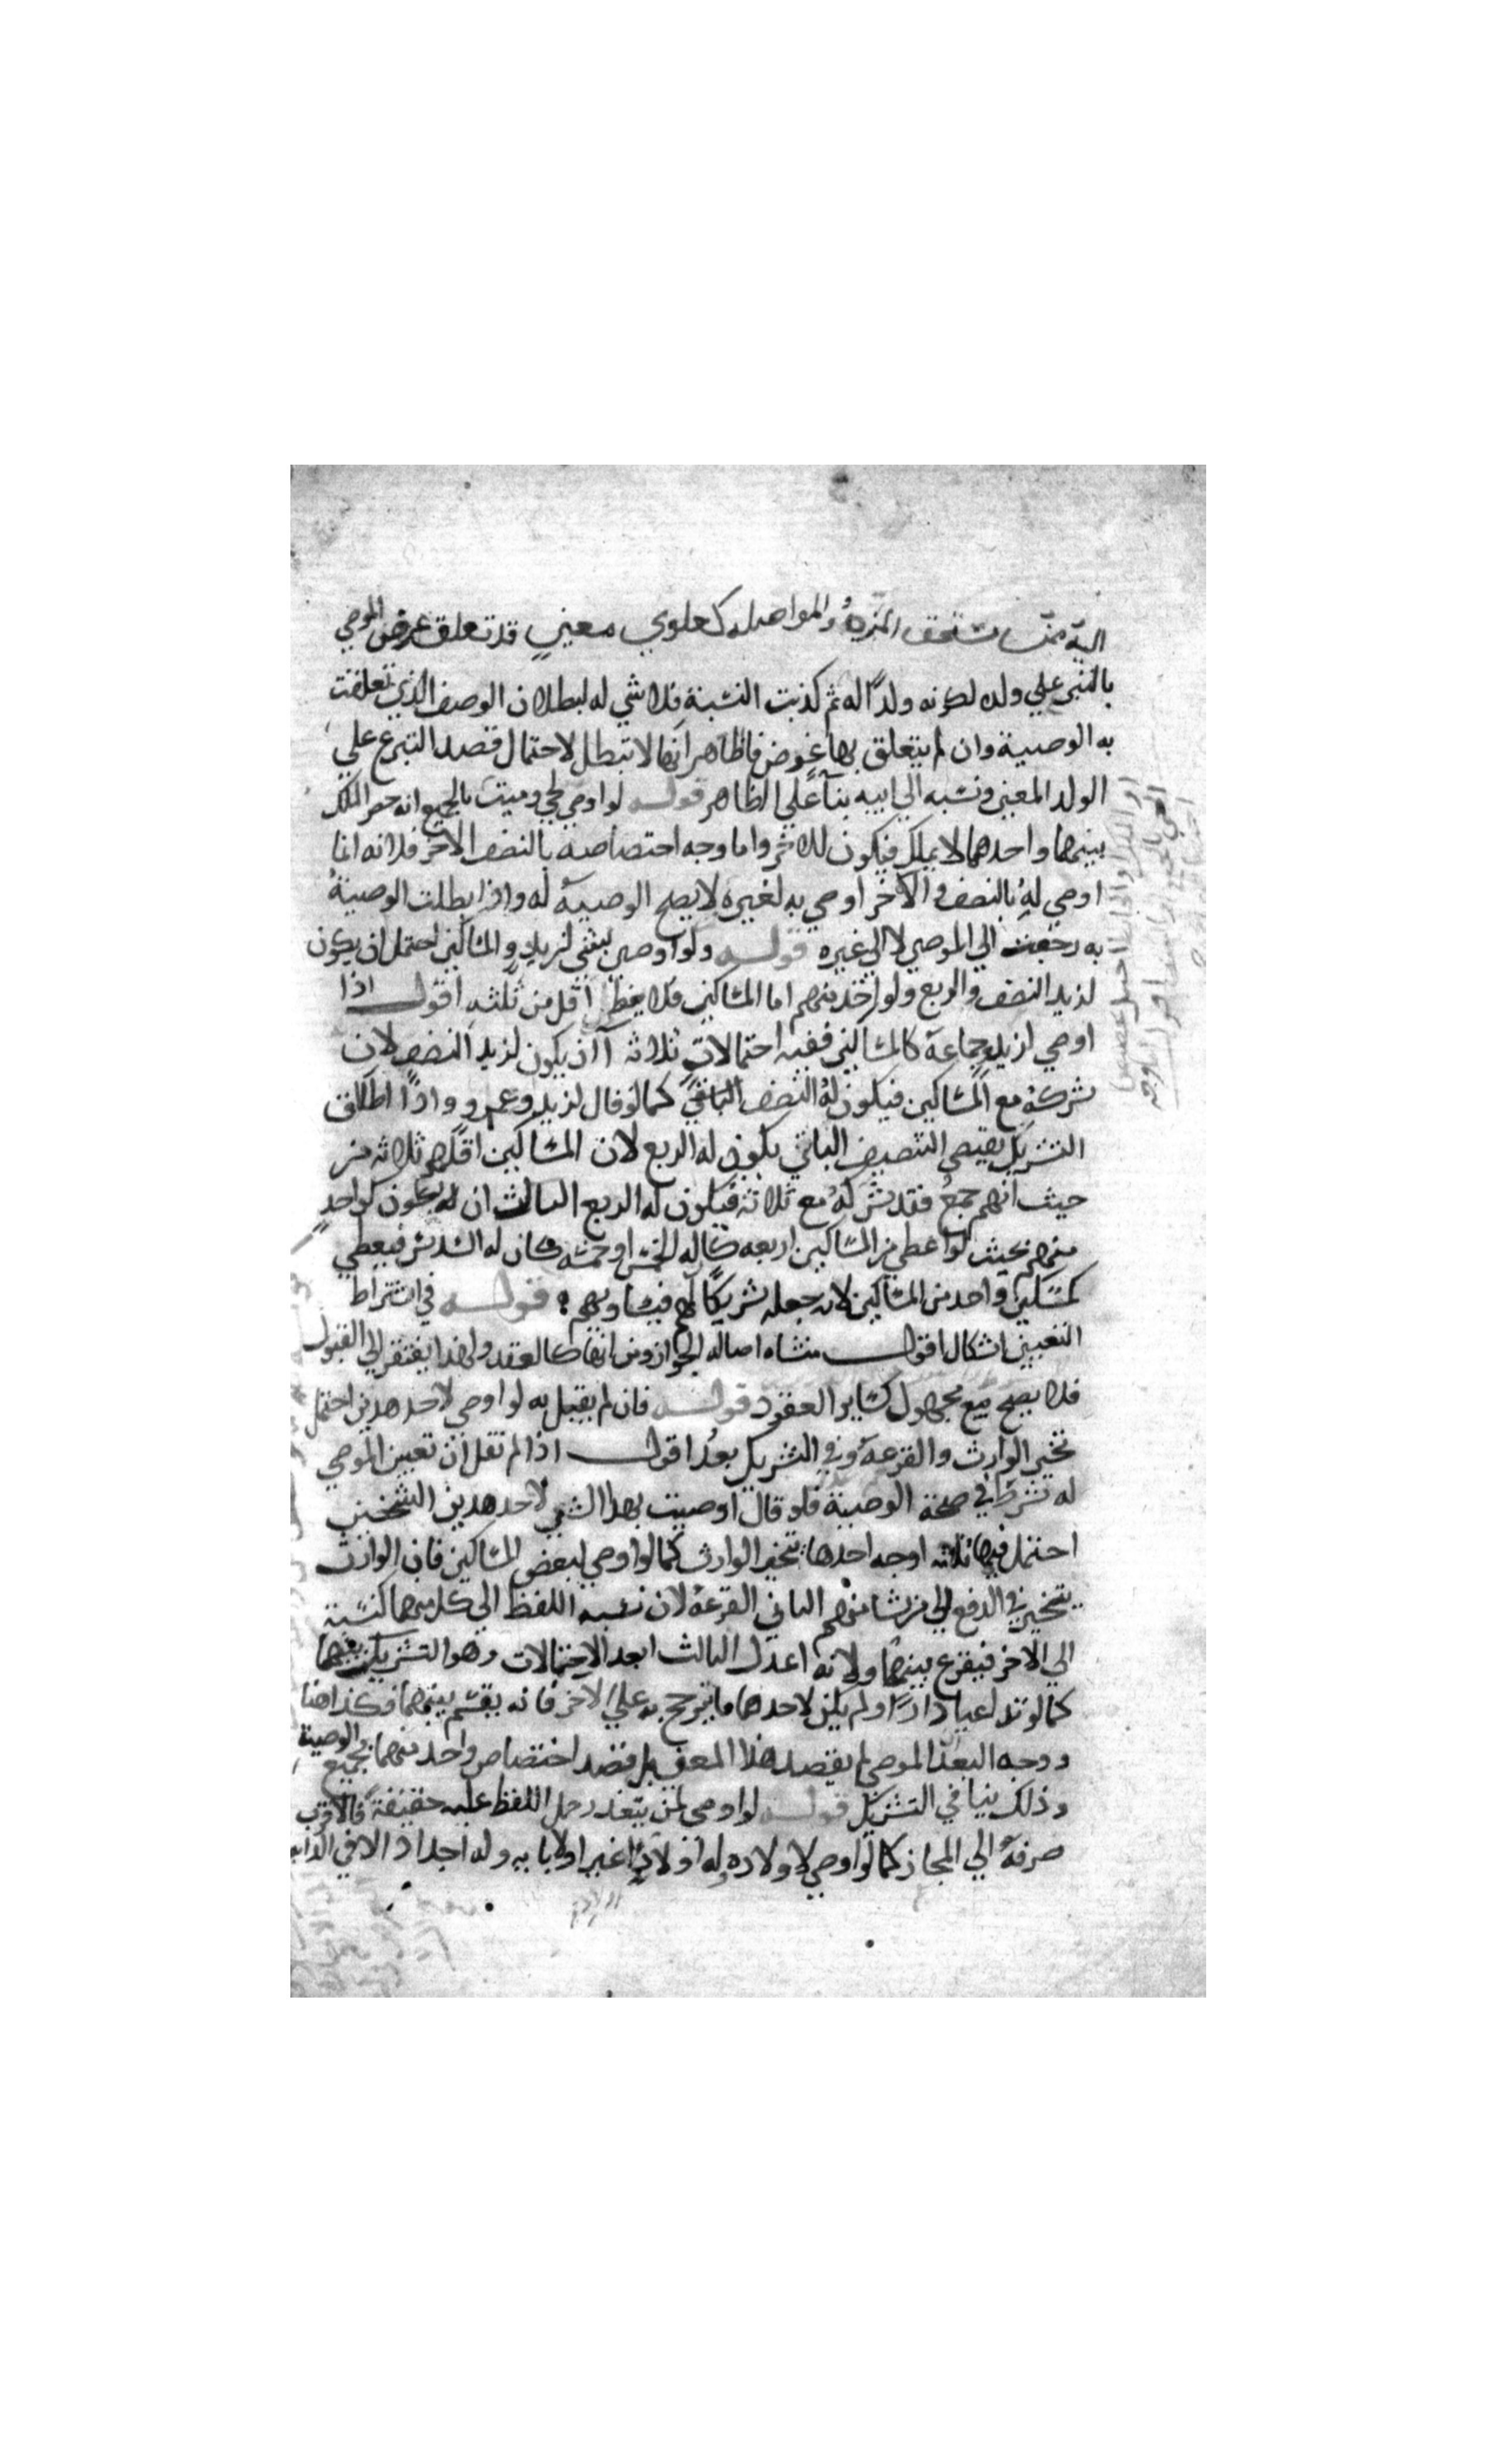 اليه ممن يستحق المزية والمواصلة كعلوي معين قد تعلق غرض الموصي
بالتبرع علي ولده لكونه ولدًا له ثم كذبت النسبة فلا شي له لبطلان الوصف الذي تعلقت
به الوصية وان لم يتعلق بها غرض فالظاهر انها لا تبطل لاحتمال قصد التبرع علي
الولد المعين ونسبه الي ابيه بناءً علي الظاهر قوله لو اوصي لحي وميت بالجميع انه حصر الملك
بينهما واحدهما لا يملك فيكون للاخر واما وجه اختصاصه بالنصف الاخر فلانه انما
اوصي له بالنصف والآخر اوصي به لغيره لا يصح الوصية له واذا بطلت الوصية
به رجعت الي الموصي لا الي غيره قوله ولو اوصي بشي لزيد والمساكين احتمل ان يكون
لزيد النصف والربع ولواحد منهم اما المساكين فلا يعطي اقل من ثلثه اقول اذا
اوصي لزيد وجماعة كالمساكين ففيه احتمالات ثلاثة آ ان يكون لزيد النصف لان
شركه مع المساكين فيكون له النصف كما لو قال لزيد وعمرو واذا اطلاق
التشريك يقتضي التنصيف الثاني يكون له الربع لان المساكين اقلهم ثلاثة من
حيث انهم جمع فقد شركه مع ثلاثة فيكون له الربع الثالث ان يكون كواحد
منهم بحيث لو اعطي من المساكين اربعه كان له الخمس او خمسه كان له السدس فيعطي
كمسكين واحد من المساكين لانه جعله شريكًا لهم فيساويهم قوله في اشتراط
التعيين اشكال اقول منشاه اصاله الجواز ومن انها كالعقد ولهذا يفتقر الي القبول
فلا يصح مع مجهول كساير العقود قوله فان لم يقبل به لو اوصي لاحد هذين احتمل
تخير الوارث والقرعة وفي التشريك بعد اقول اذا لم نقل ان تعيين الموصي
له شرط في صحة الوصية فلو قال اوصيت بهذا الشي لاحد هذين الشخصين
احتمل فيها ثلاثه اوجه احدها تخير الوارث كما لو اوصي لبعض المساكين فان الوارث
يتخير في الدفع الي من شا منهم الثاني القرعة لان نسبه اللفظ الي كل منهما كنسبة
الي الاخر فيقرع بينهما ولانه اعدل الثالث ابعد الاحتمالات وهو التشريك بينهما
كما لو تداعيا دارًا ولم يكن لاحدهما ما يترجح به علي الاخر فانه يقسم بينهما فكذا هنا
ووجه البعد الموصي لم يقصد هذا المعني بل قصد اختصاص واحد منهما بجميع الوصية
وذلك ينافي التشريك قوله لو اوصي لمن يتعذر حمل اللفظ عليه حقيقة فالاقرب
صرفه الي المجاز كما لو اوصي لاولاده وله اولاد اولاد او لابايه وله اجداد